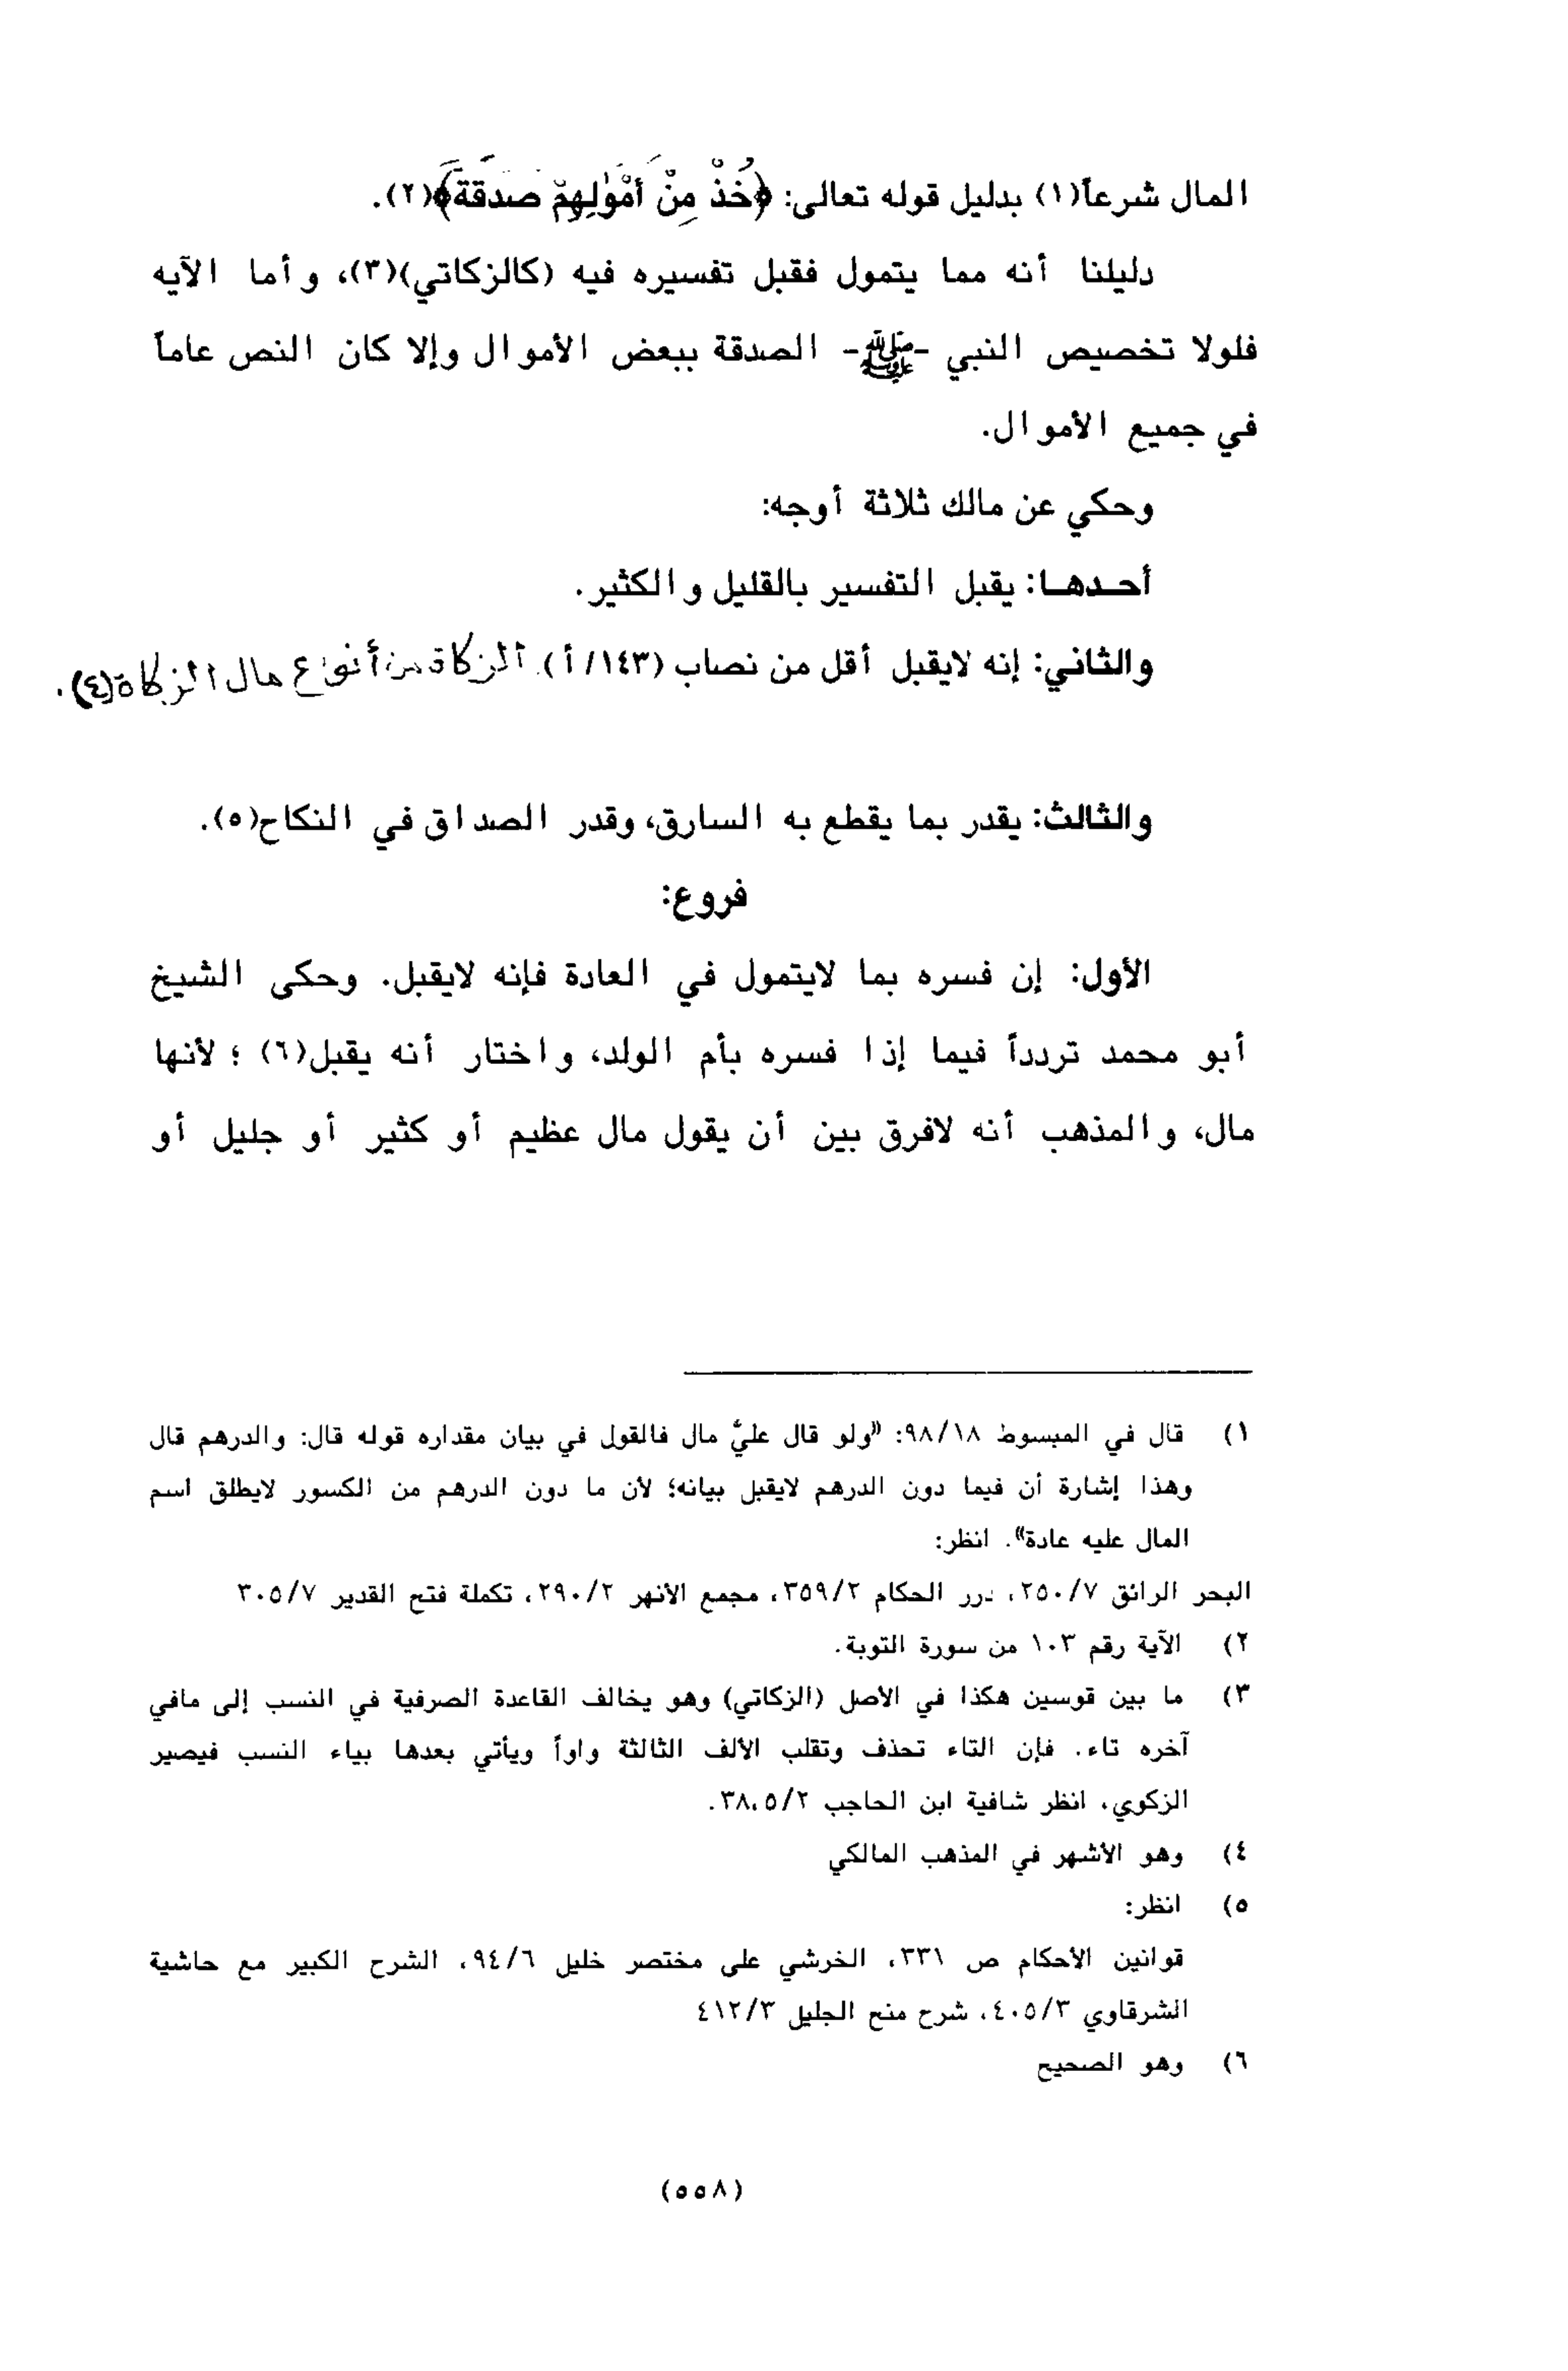 المال شرعاً(١) بدليل قوله تعالى: ﴿خُذْ مِنْ أَمْوَٰلِهِمْ صَدَقَةً﴾(٢).
دليلنا أنه مما يتمول فقبل تفسيره فيه (كالزكاتي)(٣)، وأما الآيه
فلولا تخصيص النبي -ﷺ- الصدقة ببعض الأموال وإلا كان النص عاماً
في جميع الأموال.
وحكي عن مالك ثلاثة أوجه:
أحدهـا: يقبل التفسير بالقليل والكثير.
والثاني: إنه لايقبل أقل من نصاب (١٤٣/أ) الزكاة من أنواع مال الزكاة(٤).
والثالث: يقدر بما يقطع به السارق، وقدر الصداق في النكاح(٥).
فروع:
الأول: إن فسره بما لايتمول في العادة فإنه لايقبل. وحكى الشيخ
أبو محمد تردداً فيما إذا فسره بأم الولد، واختار أنه يقبل(٦) ؛ لأنها
مال، والمذهب أنه لافرق بين أن يقول مال عظيم أو كثير أو جليل أو
١) قال في المبسوط ٩٨/١٨: «ولو قال عليَّ مال فالقول في بيان مقداره قوله قال: والدرهم قال
وهذا إشارة أن فيما دون الدرهم لايقبل بيانه؛ لأن ما دون الدرهم من الكسور لايطلق اسم
المال عليه عادة». انظر:
البحر الرائق ٢٥٠/٧، درر الحكام ٣٥٩/٢، مجمع الأنهر ٢٩٠/٢، تكملة فتح القدير ٣٠٥/٧
٢) الآية رقم ١٠٣ من سورة التوبة.
٣) ما بين قوسين هكذا في الأصل (الزكاتي) وهو يخالف القاعدة الصرفية في النسب إلى مافي
آخره تاء. فإن التاء تحذف وتقلب الألف الثالثة واواً ويأتي بعدها بياء النسب فيصير
الزكوي، انظر شافية ابن الحاجب ٣٨،٥/٢.
٤) وهو الأشهر في المذهب المالكي
٥) انظر:
قوانين الأحكام ص ٣٣١، الخرشي على مختصر خليل ٩٤/٦، الشرح الكبير مع حاشية
الشرقاوي ٤٠٥/٣، شرح منح الجليل ٤١٢/٣
٦) وهو الصحيح
(٥٥٨)